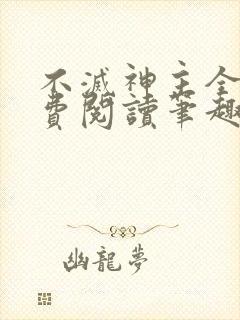 不滅神主全
費閱讀筆趣
幽龍夢